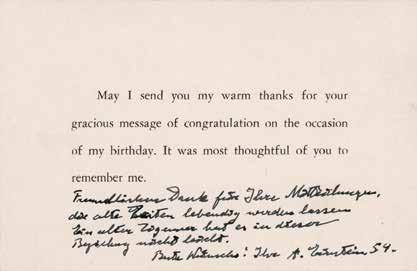 May I send you my warm thanks for your
gracious message of congratulation on the occasion
of my birthday. It was most thoughtful of you to
remember me.
Freundlichen Dank für Ihre Mitteilungen,
die alte Zeiten lebendig werden lassen
Ein alter Zigeuner hat es in dieser
Beziehung nicht leicht.
Gute Wünsche! Ihr A. Einstein 54.